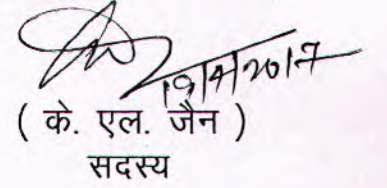 19/4/2017
( के. एल. जैन )
सदस्य